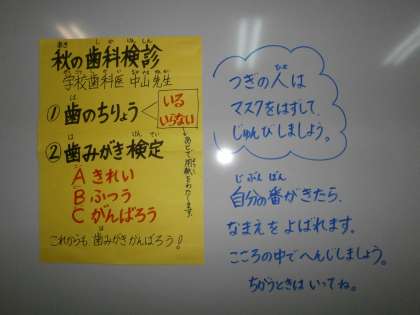 秋の歯科検診
学校歯科医 中山先生
① 歯のちりょう
いる
いらない
あとで用紙をわたします。
② 歯みがき検定
A きれい
B ふつう
C がんばろう
これからも歯みがきがんばろう!
つぎの人は
マスクをはずして、
じゅんびしましょう。
自分の番がきたら、
なまえをよばれます。
こころの中でへんじしましょう。
ちがうときはいってね。